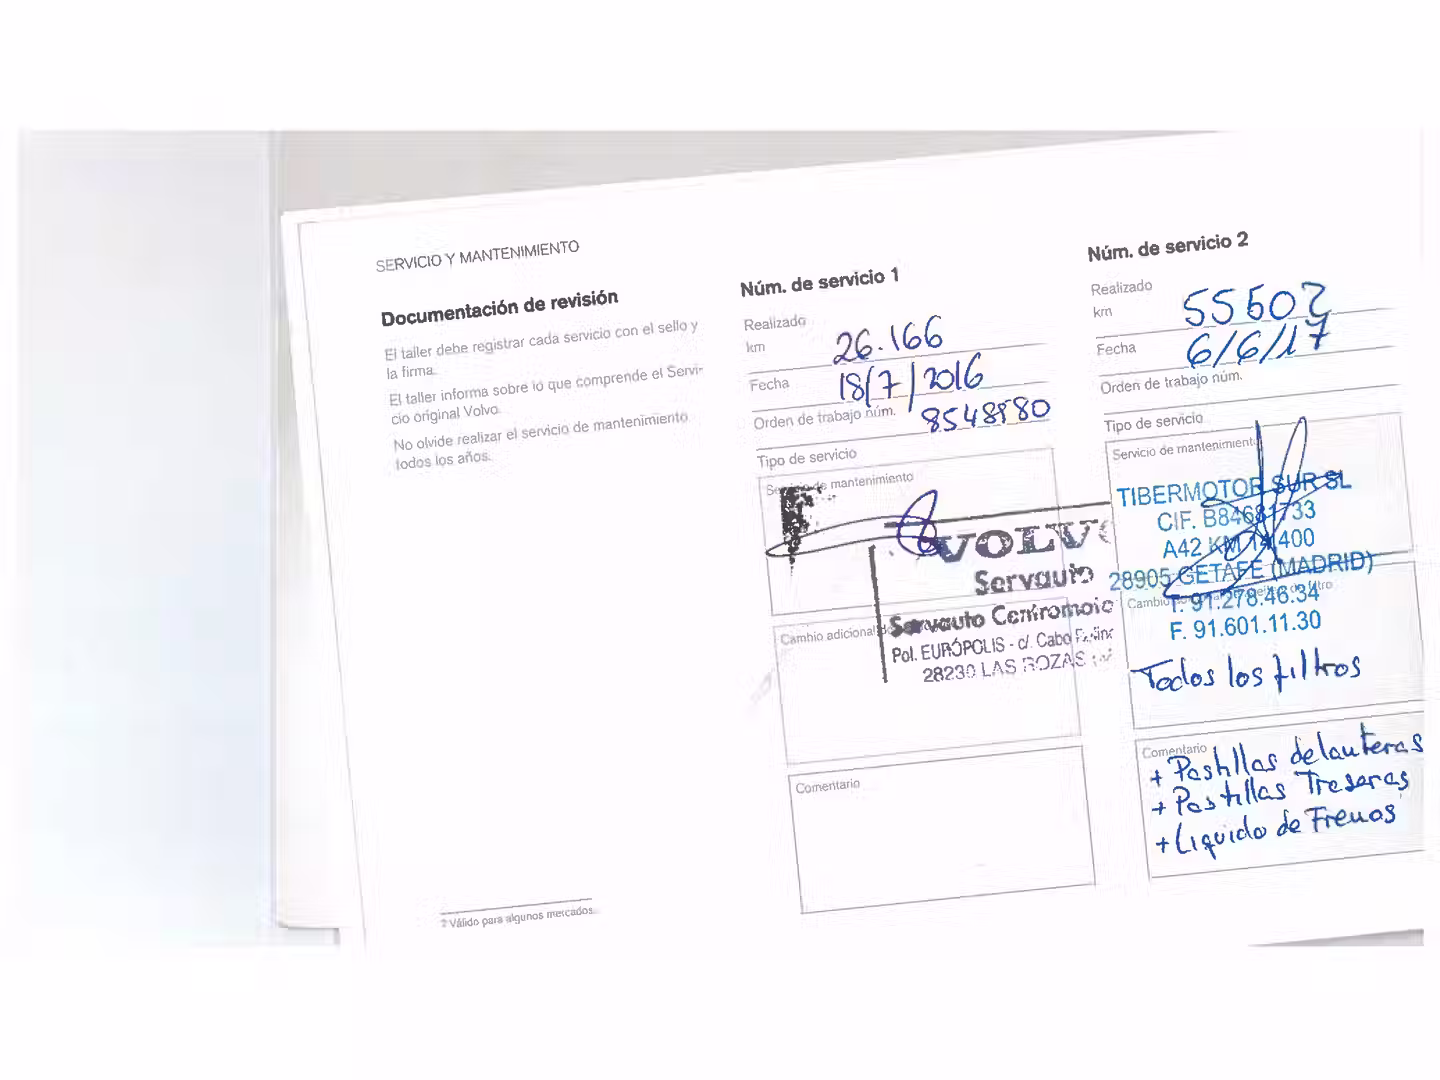 SERVICIO Y MANTENIMIENTO
Documentación de revisión
El taller debe registrar cada servicio con el sello y
la firma.
El taller informa sobre lo que comprende el Servi-
cio original Volvo.
No olvide realizar el servicio de mantenimiento
todos los años.
2 Válido para algunos mercados.
Núm. de servicio 1
Realizado
km 26.166
Fecha 18/7/2016
Orden de trabajo núm. 8548980
Tipo de servicio
Servicio de mantenimiento
VOLVO
Servauto
Servauto Centromoto
Pol. EURÓPOLIS - c/. Cabo
28230 LAS ROZAS
Cambio adicional
Comentario
Núm. de servicio 2
Realizado
km 55502
Fecha 6/6/17
Orden de trabajo núm.
Tipo de servicio
Servicio de mantenimiento
TIBERMOTOR SUR SL
CIF. B84681733
A42 KM 14,400
28905 GETAFE (MADRID)
T. 91.278.46.34
F. 91.601.11.30
Cambio filtro
Todos los filtros
Comentario
+ Pastillas delanteras
+ Pastillas Traseras
+ Liquido de Frenos